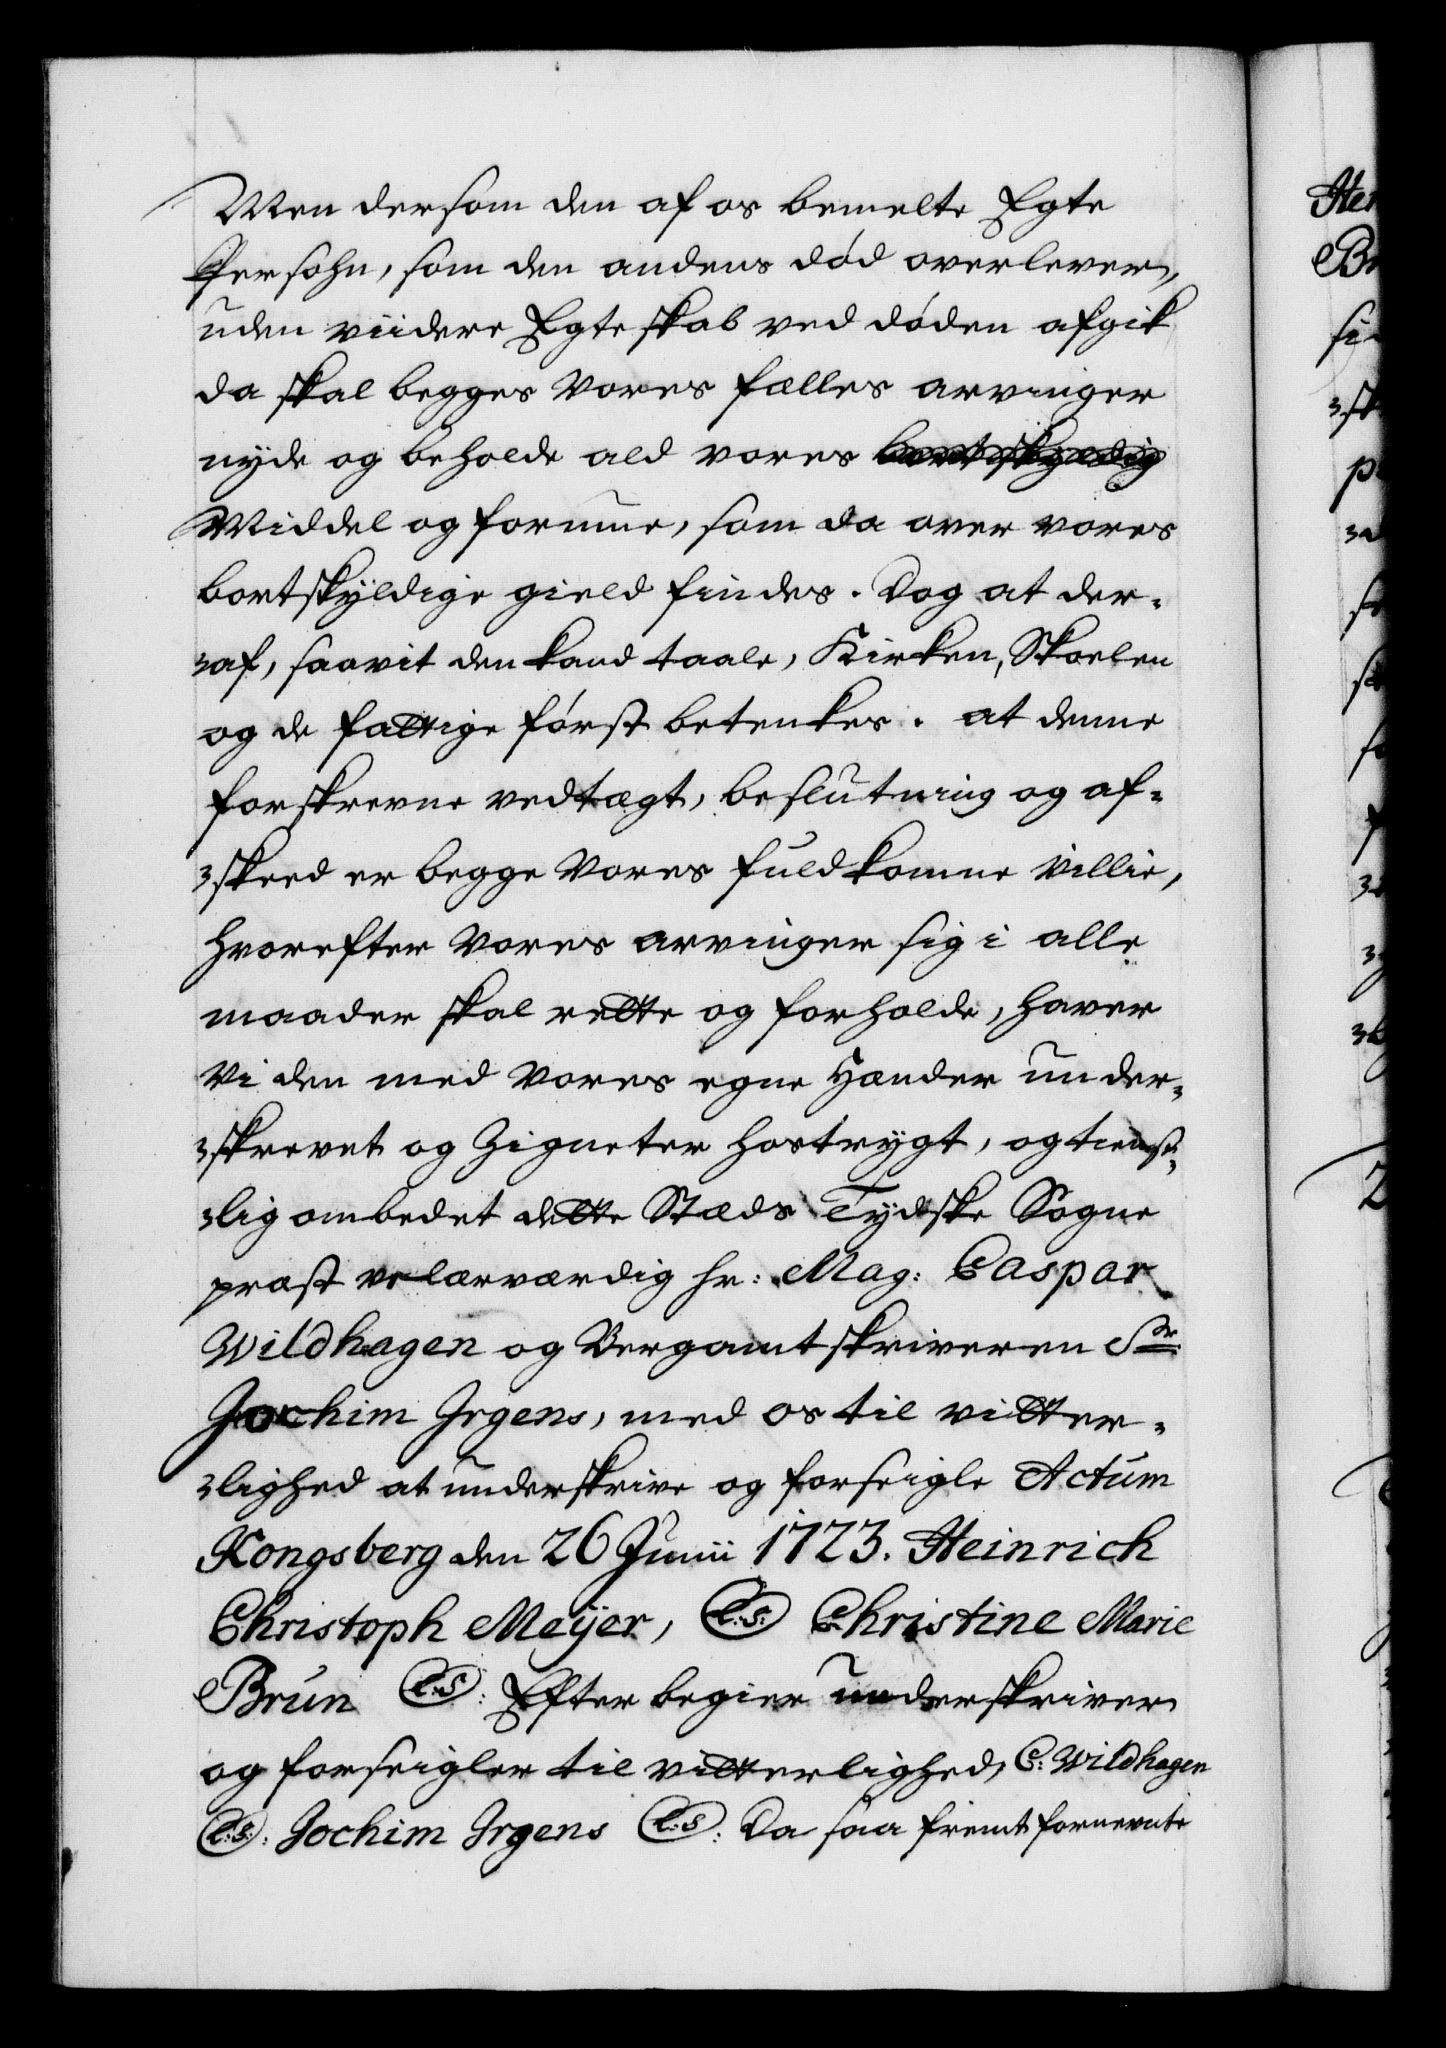 Men dersom den af os bemelte Egte
Persohn, som den andens död overlever,
uden viidere Egteskab ved döden afgik
da skal begges Vores fælles arvinger
nyde og beholde ald vores bortskyldig
Middel og formue, som da over vores
bortskyldige gield findes. Dog at der-
-af, saavit den kand taale, Kirken, Skoelen
og de fattige först betenkes. at denne
forskrevne vedtægt, beslutning og af-
-skeed er begge Vores fuldkomne Villie,
hvorefter Vores arvinger sig i alle
maader skal rette og forholde, haver
Vi den med Vores egne Hænder under-
-skrevet og Zigneter hostrygt, og tienst-
-lig ombedet dette Stæds Tydske Sogne
præst velærværdig hr: Mag: Caspar
Wildhagen og Bergamtskriveren Sr
Jochim Irgens, med os til vitter-
-lighed at underskrive og forseigle Actum
Kongsberg den 26 Junii 1723. Heinrich
Christoph Meÿer, L:S: Christine Marie
Brun L:S: Efter begier underskriver
og forseigler til vitterlighed, C: Wildhagen
L:S: Jochim Irgens L:S: Da saa fremt fornevnte
Her
Br